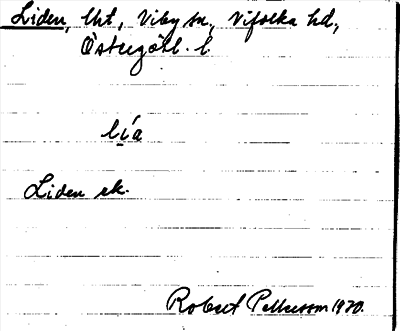 Liden, lht, Viby sn, Vifolka hd,
Östergötl. l.
lía
Liden ek.
Robert Pettersson 1970.